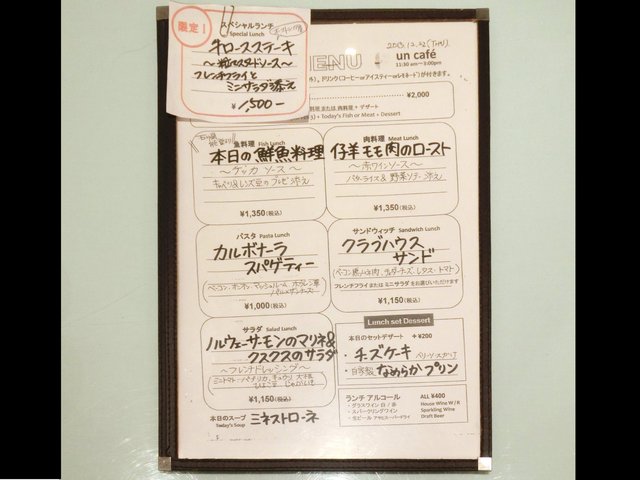 限定！
スペシャルランチ
Special Lunch
牛ロースステーキ
～粒マスタードソース～
フレンチフライと
ミニサラダ添え
¥1,500-
MENU
un café
11:30 am～3:00pm
ドリンク(コーヒーorアイスティーorレモネード)が付きます。
¥2,000
または 肉料理 + デザート
Today's Fish or Meat + Dessert
魚料理 Fish Lunch
本日の鮮魚料理
ソース～
キャベツ&レンズ豆のブレゼ 添え
¥1,350(税込)
肉料理 Meat Lunch
仔羊モモ肉のロースト
～赤ワインソース～
バターライス&野菜ソテー添え
¥1,350(税込)
パスタ Pasta Lunch
カルボナーラ
スパゲティー
¥1,000(税込)
サンドウィッチ Sandwich Lunch
クラブハウス
サンド
フレンチフライまたは ミニサラダ をお選びいただけます
¥1,150(税込)
サラダ Salad Lunch
ノルウェーサーモンのマリネ&
クスクスのサラダ
～フレンチドレッシング～
¥1,150(税込)
本日のスープ
Today's Soup
ミネストローネ
Lunch set Dessert
本日のセットデザート +¥200
・チーズケーキ
・自家製 なめらかプリン
ランチ アルコール ALL ¥400
・グラスワイン 白 / 赤 House Wine W/R
・スパークリングワイン Sparkling Wine
・生ビール アサヒスーパードライ Draft Beer